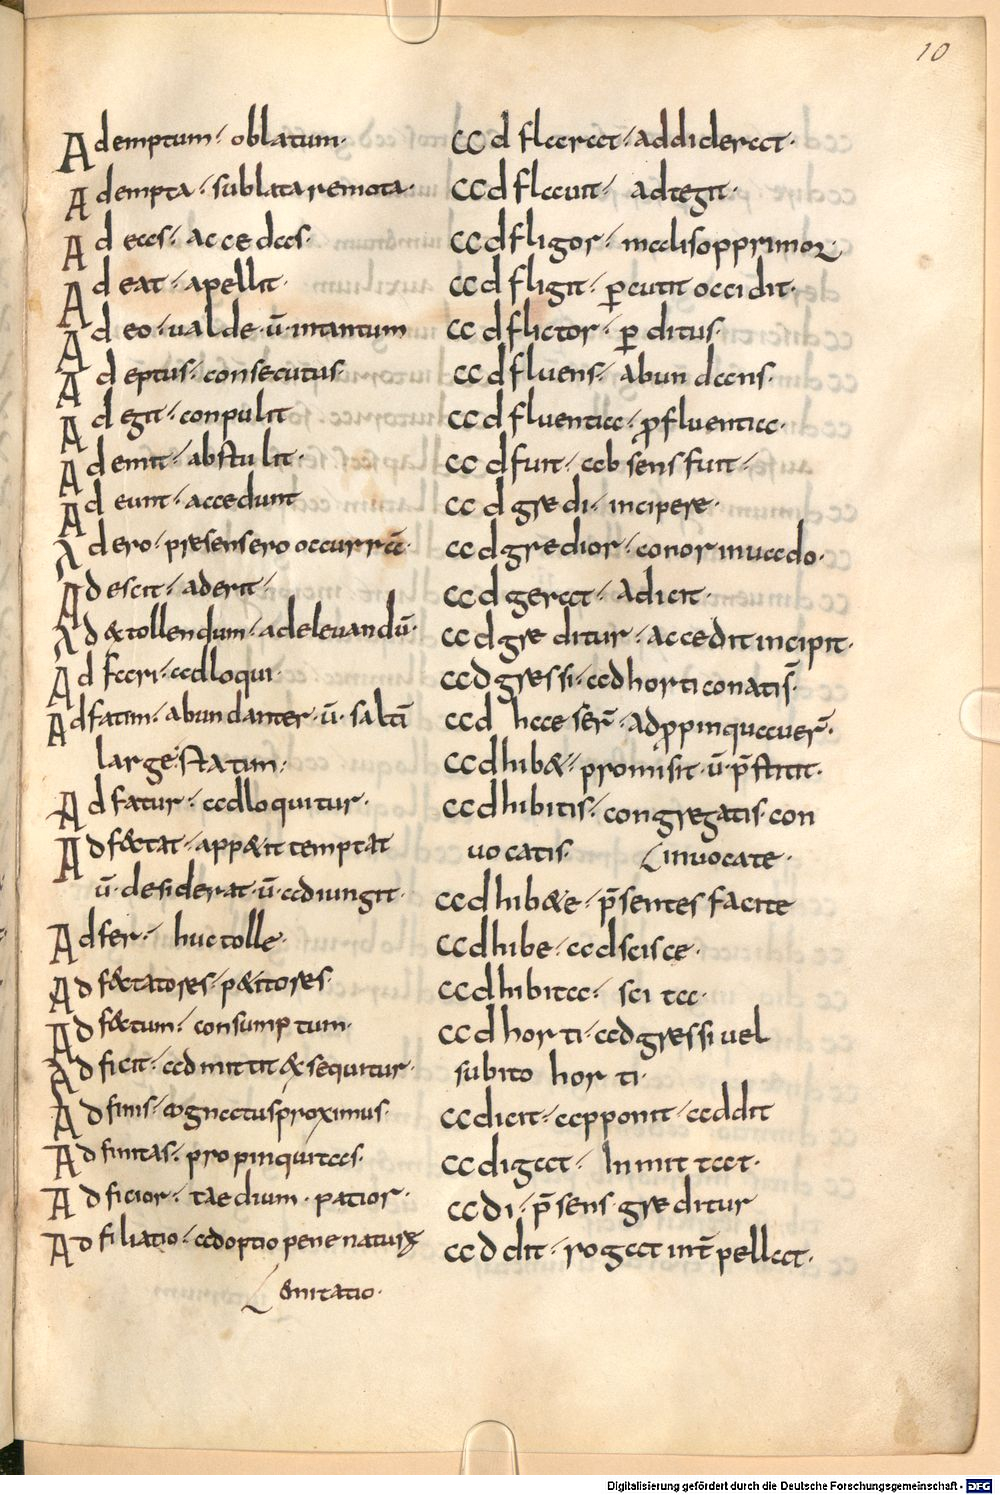 10
Ademptum· oblatum·
Adempta· sublata remota·
Adeas· accedas·
Adeat· apellit·
Adeo· ualde· ū· intantum
Adeptus· consecutus·
Adegit· conpulit
Ademit· abstulit·
Adeunt· accedunt
Adero· presens ero occurrā·
Adescit· aderit·
Ad &tollendum· adeleuandū·
Adfari· adloqui·
Adfatim· abundanter· ū· saltī
large· statim·
Adfatur· adloquitur·
Adf&tat· app&it temptat
ū· desiderat· ū· adiungit·
Adfer· huc tolle·
Adf&tatores· p&itores·
Adf&tum· consumptum·
Adficit· admittit & sequitur·
Adfinis· cognatus proximus·
Adfinitas· propinquitas·
Adficior· taedium· patior·
Adfiliatio· adoptio pene naturæ
imitatio·
Adflaret· addideret·
Adflauit· adtegit·
Adfligor· malis opprimor
Adfligit· percutit occidit·
Adflictor· perditus·
Adfluens· abundans·
Adfluentia· profluentia·
Adfuit· absens fuit·
Adgredi· incipere·
Adgredior· conor inuado·
Adgerat· Adicit·
Adgreditur· accedit incipit·
Adgressi· adhorti conatis̄·
Ad haeser̄· adpropinquauer̄·
Adhib&· promisit· ū· p̄stitit·
Adhibitis· congregatis· con
uocatis· inuocate·
Adhib&e· p̄sentes facite
Adhibe· adscisce·
Adhibita· scita·
Adhorti· adgressi uel
subito horti·
Adicit· apponit· addit
Adigat· Inmittat·
Adi· p̄sens· greditur
Addit· rogat int̄pellat·
Digitalisierung gefördert durch die Deutsche Forschungsgemeinschaft - DFG